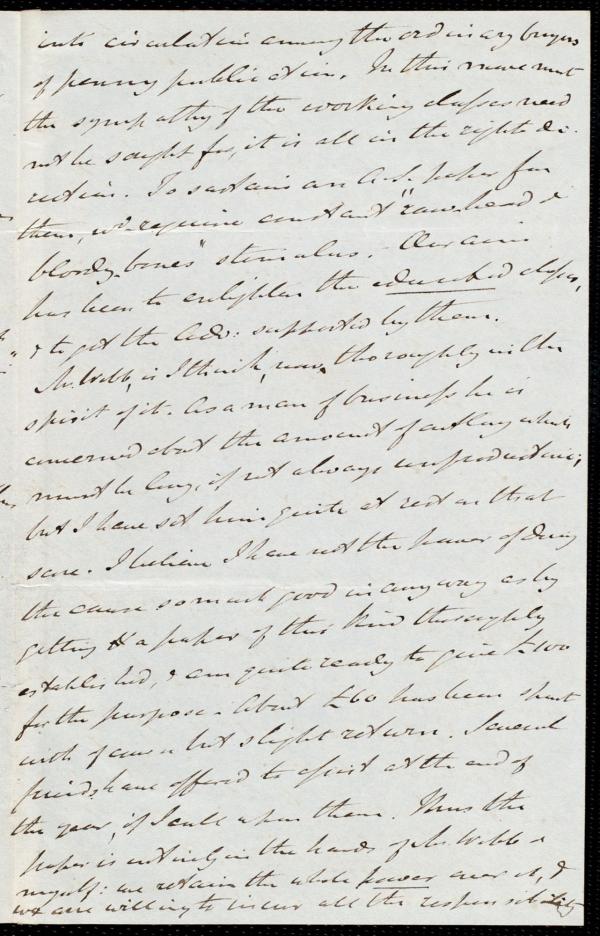 into circulation among the ordinary buyers
of penny publication. In this movement
the sympathy of the working classes need
not be sought for, it is all in the right di-
rection. To sustain an A.S. paper for
them, wd. require constant "raw-head &
bloody-bones" stimulus. - Our aim
has been to enlighten the educated classes,
& to get the Adv: supported by them.
Mr. Webb, is I think, now, thoroughly in the
spirit of it. As a man of business he is
concerned about the amount of outlay which
must be long, if not always unproductive;
but I have set him quite at rest on that
score. I believe I have not the power of doing
the cause so much good in any way as by
getting a paper of this kind thoroughly
established, & am quite ready to give £100
for the purpose. About £60 has been spent
with of course but slight return. Several
friends have offered to assist at the end of
the year, if I call upon them. Thus the
paper is entirely in the hands of Mr. Webb &
myself: we retain the whole power over it, &
we are willing to incur all the responsibility